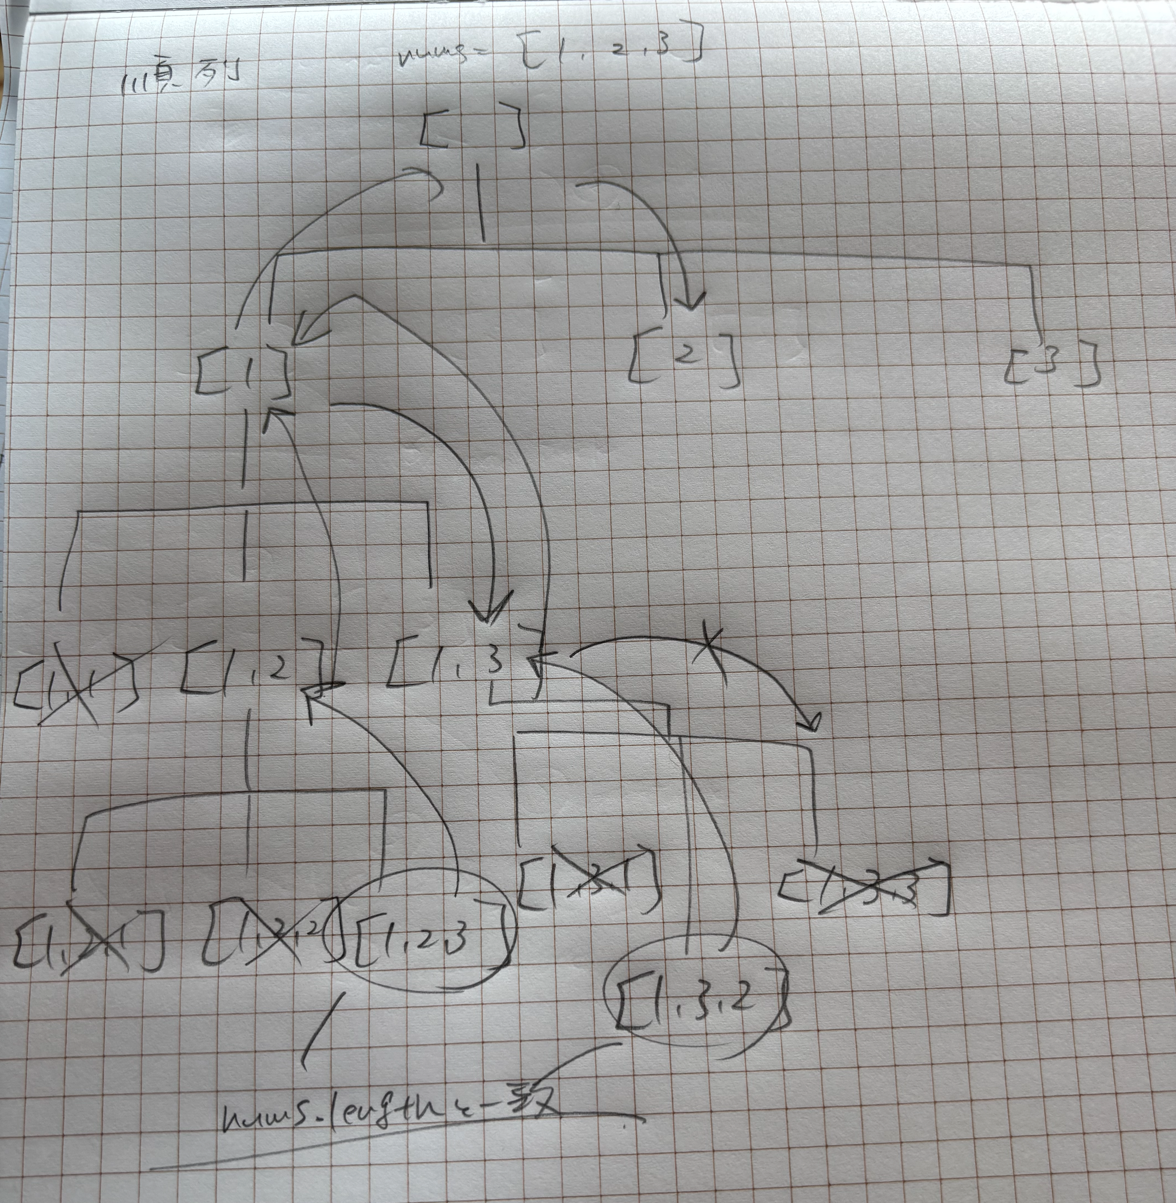 順列
nums = [1, 2, 3]
[ ]
[1]
[2]
[3]
[1, 1]
[1, 2]
[1, 3]
[1, 2, 1]
[1, 2, 2]
[1, 2, 3]
[1, 3, 1]
[1, 3, 2]
[1, 3, 3]
nums.lengthと一致